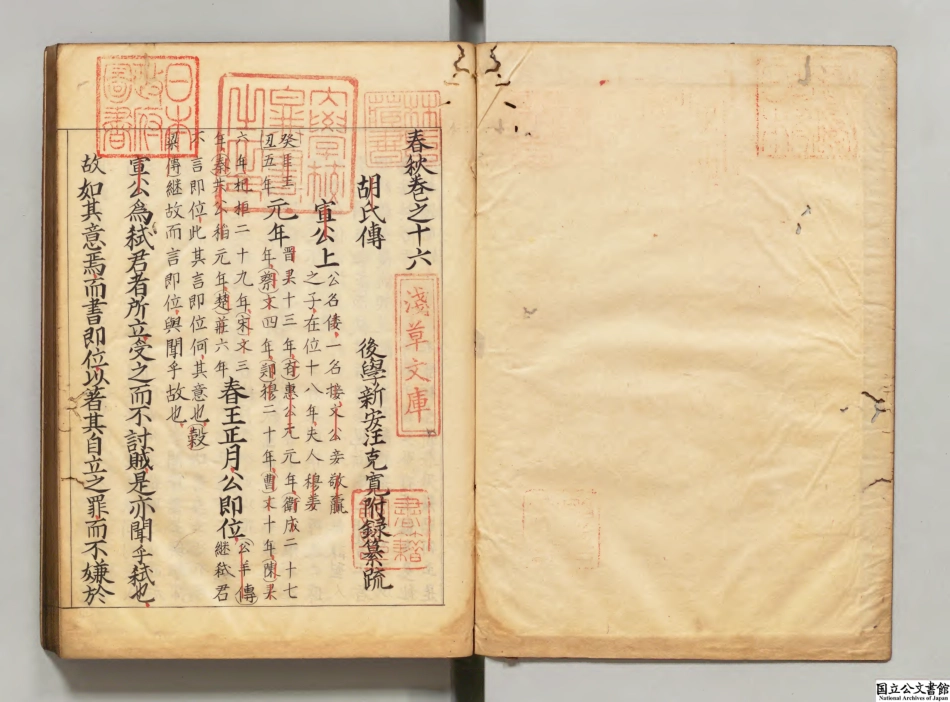 春秋巻之十六
胡氏傳 後學新安汪克寬附録纂疏
宣公上 公名倭一名接文公妾敬嬴
之子在位十八年夫人穆姜
癸 匡王
丑 五年 元年 晋 十三年 惠公元元年衛成二十七
年蔡文四年鄭穆二十年曹文十年陳
六年杞桓二十九年宋文三
年秦共公稻元年楚莊六年 春王正月公即位 公羊傳
継弑君
不言即位此其言即位何其意也穀
梁傳継故而言即位與聞乎故也
宣公為弑君者所立受之而不討賊是亦聞乎弑也
故如其意焉而書即位以著其自立之罪而不嫌於
日本
政府
圖書
淺草文庫
林氏
藏書
書籍
館
国立公文書館
National Archives of Japan